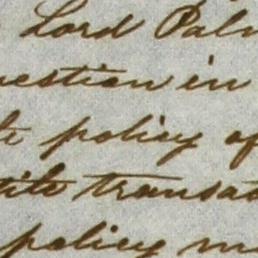 Lord Pal
uestion in
te policy of
tile transa
policy m